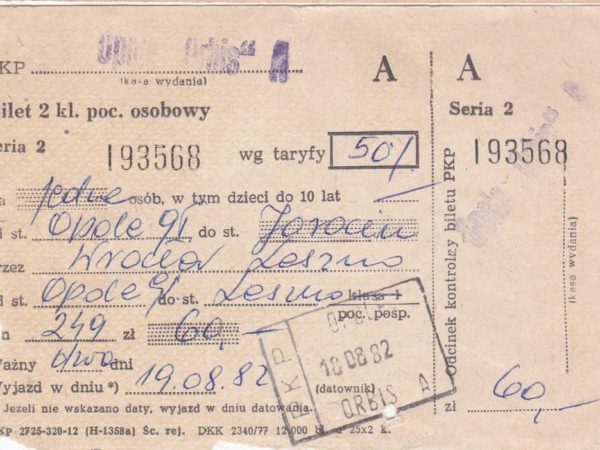 Opole „Orbis" A
KP
(kasa wydania)
A
ilet 2 kl. poc. osobowy
eria 2
193568
wg taryfy 50%
a jedne osób, w tym dzieci do 10 lat —
d st. Opole Gł do st. Jarocin
rzez Wrocław Leszno
d st. Opole Gł do st. Leszno klasa 1
poc. pośp.
m 249 zł 60,-
Ważny dwa dni
Wyjazd w dniu *) 19.08.82 (datownik)
PKP
OPOLE
18 08 82
ORBIS A
Jeżeli nie wskazano daty, wyjazd w dniu datowania.
KP 2725-320-12 (H-1358a) Śc. rej. DKK 2340/77 12 000 bl. a 25x2 k.
Odcinek kontrolny biletu PKP
A
Seria 2
193568
(kasa wydania)
zł 60,-